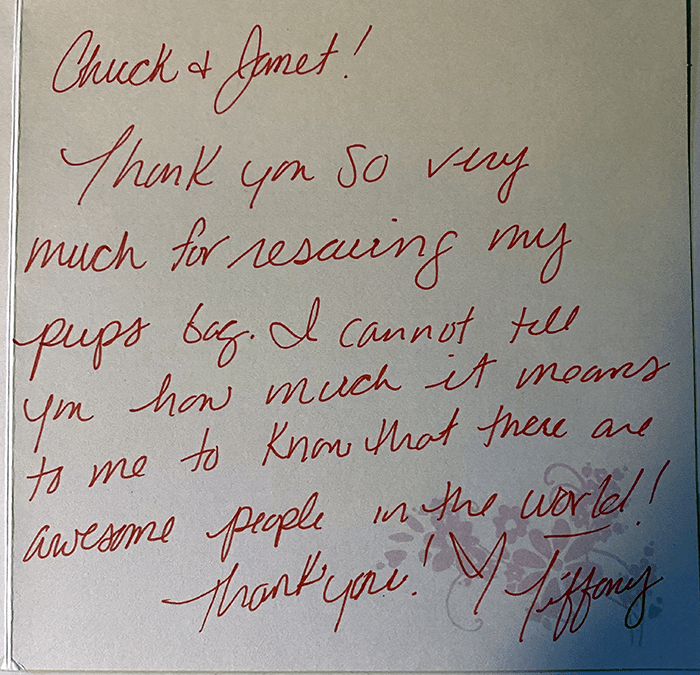 Chuck & Janet!
Thank you so very
much for rescuing my
pups bag. I cannot tell
you how much it means
to me to know that there are
awesome people in the world!
Thank you! ♡ Tiffany